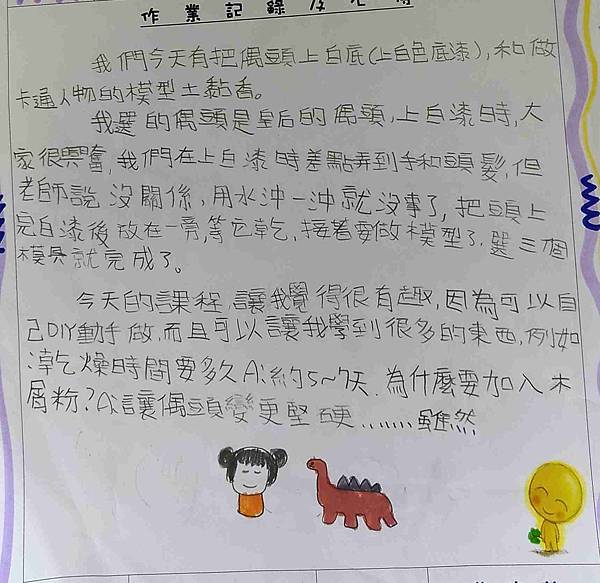 作業記錄及心得
我們今天有把偶頭上白底(上白色底漆),和做
卡通人物的模型土黏香。
我選的偶頭是皇后的偶頭,上白漆時,大
家很興奮,我們在上白漆時差點弄到手和頭髮,但
老師說沒關係,用水沖一沖就沒事了,把頭上
完白漆後放在一旁,等它乾,接著要做模型了,選三個
模具就完成了。
今天的課程,讓我覺得很有趣,因為可以自
己DIY動手做,而且可以讓我學到很多的東西,例如
:乾燥時間要多久A:約5~7天.為什麼要加入木
屑粉?A:讓偶頭變更堅硬........雖然